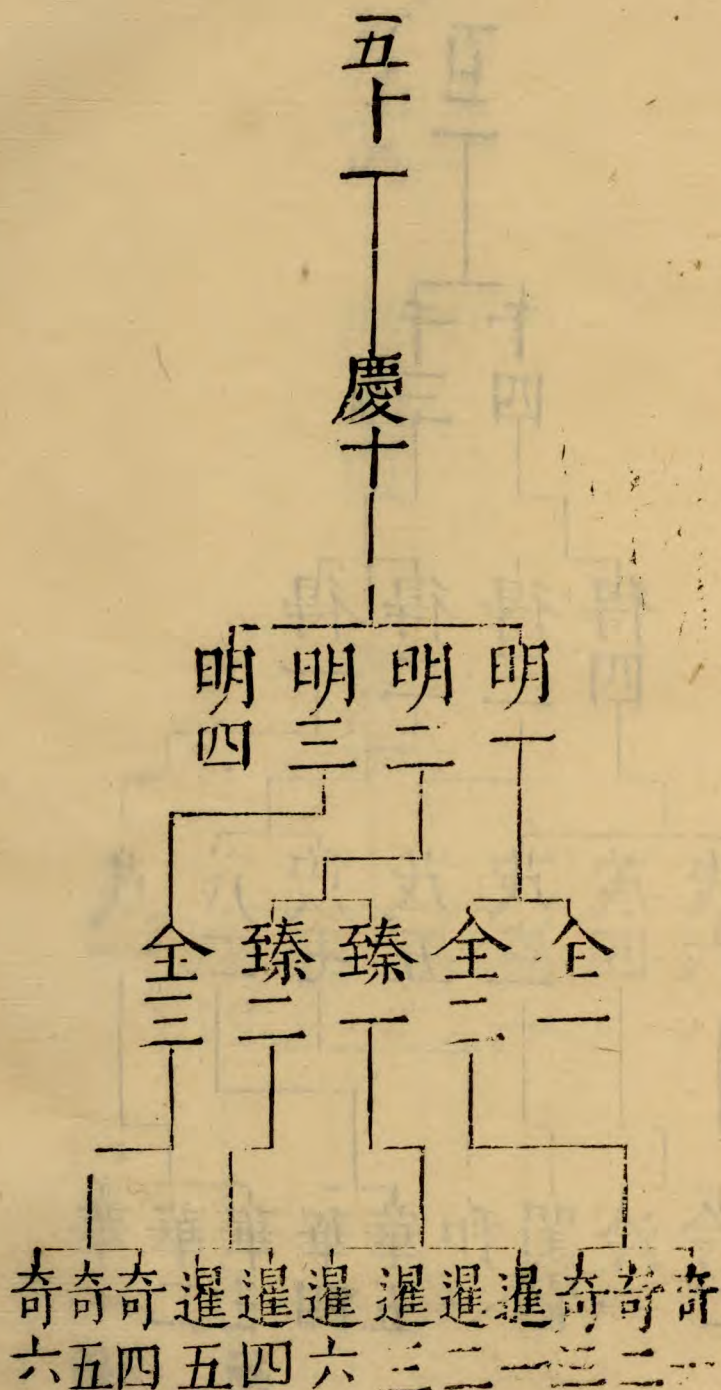 五十一
慶十
明一
明二
明三
明四
全一
全二
臻一
臻二
全三
奇一
奇二
奇三
暹一
暹二
暹三
暹六
暹四
暹五
奇四
奇五
奇六